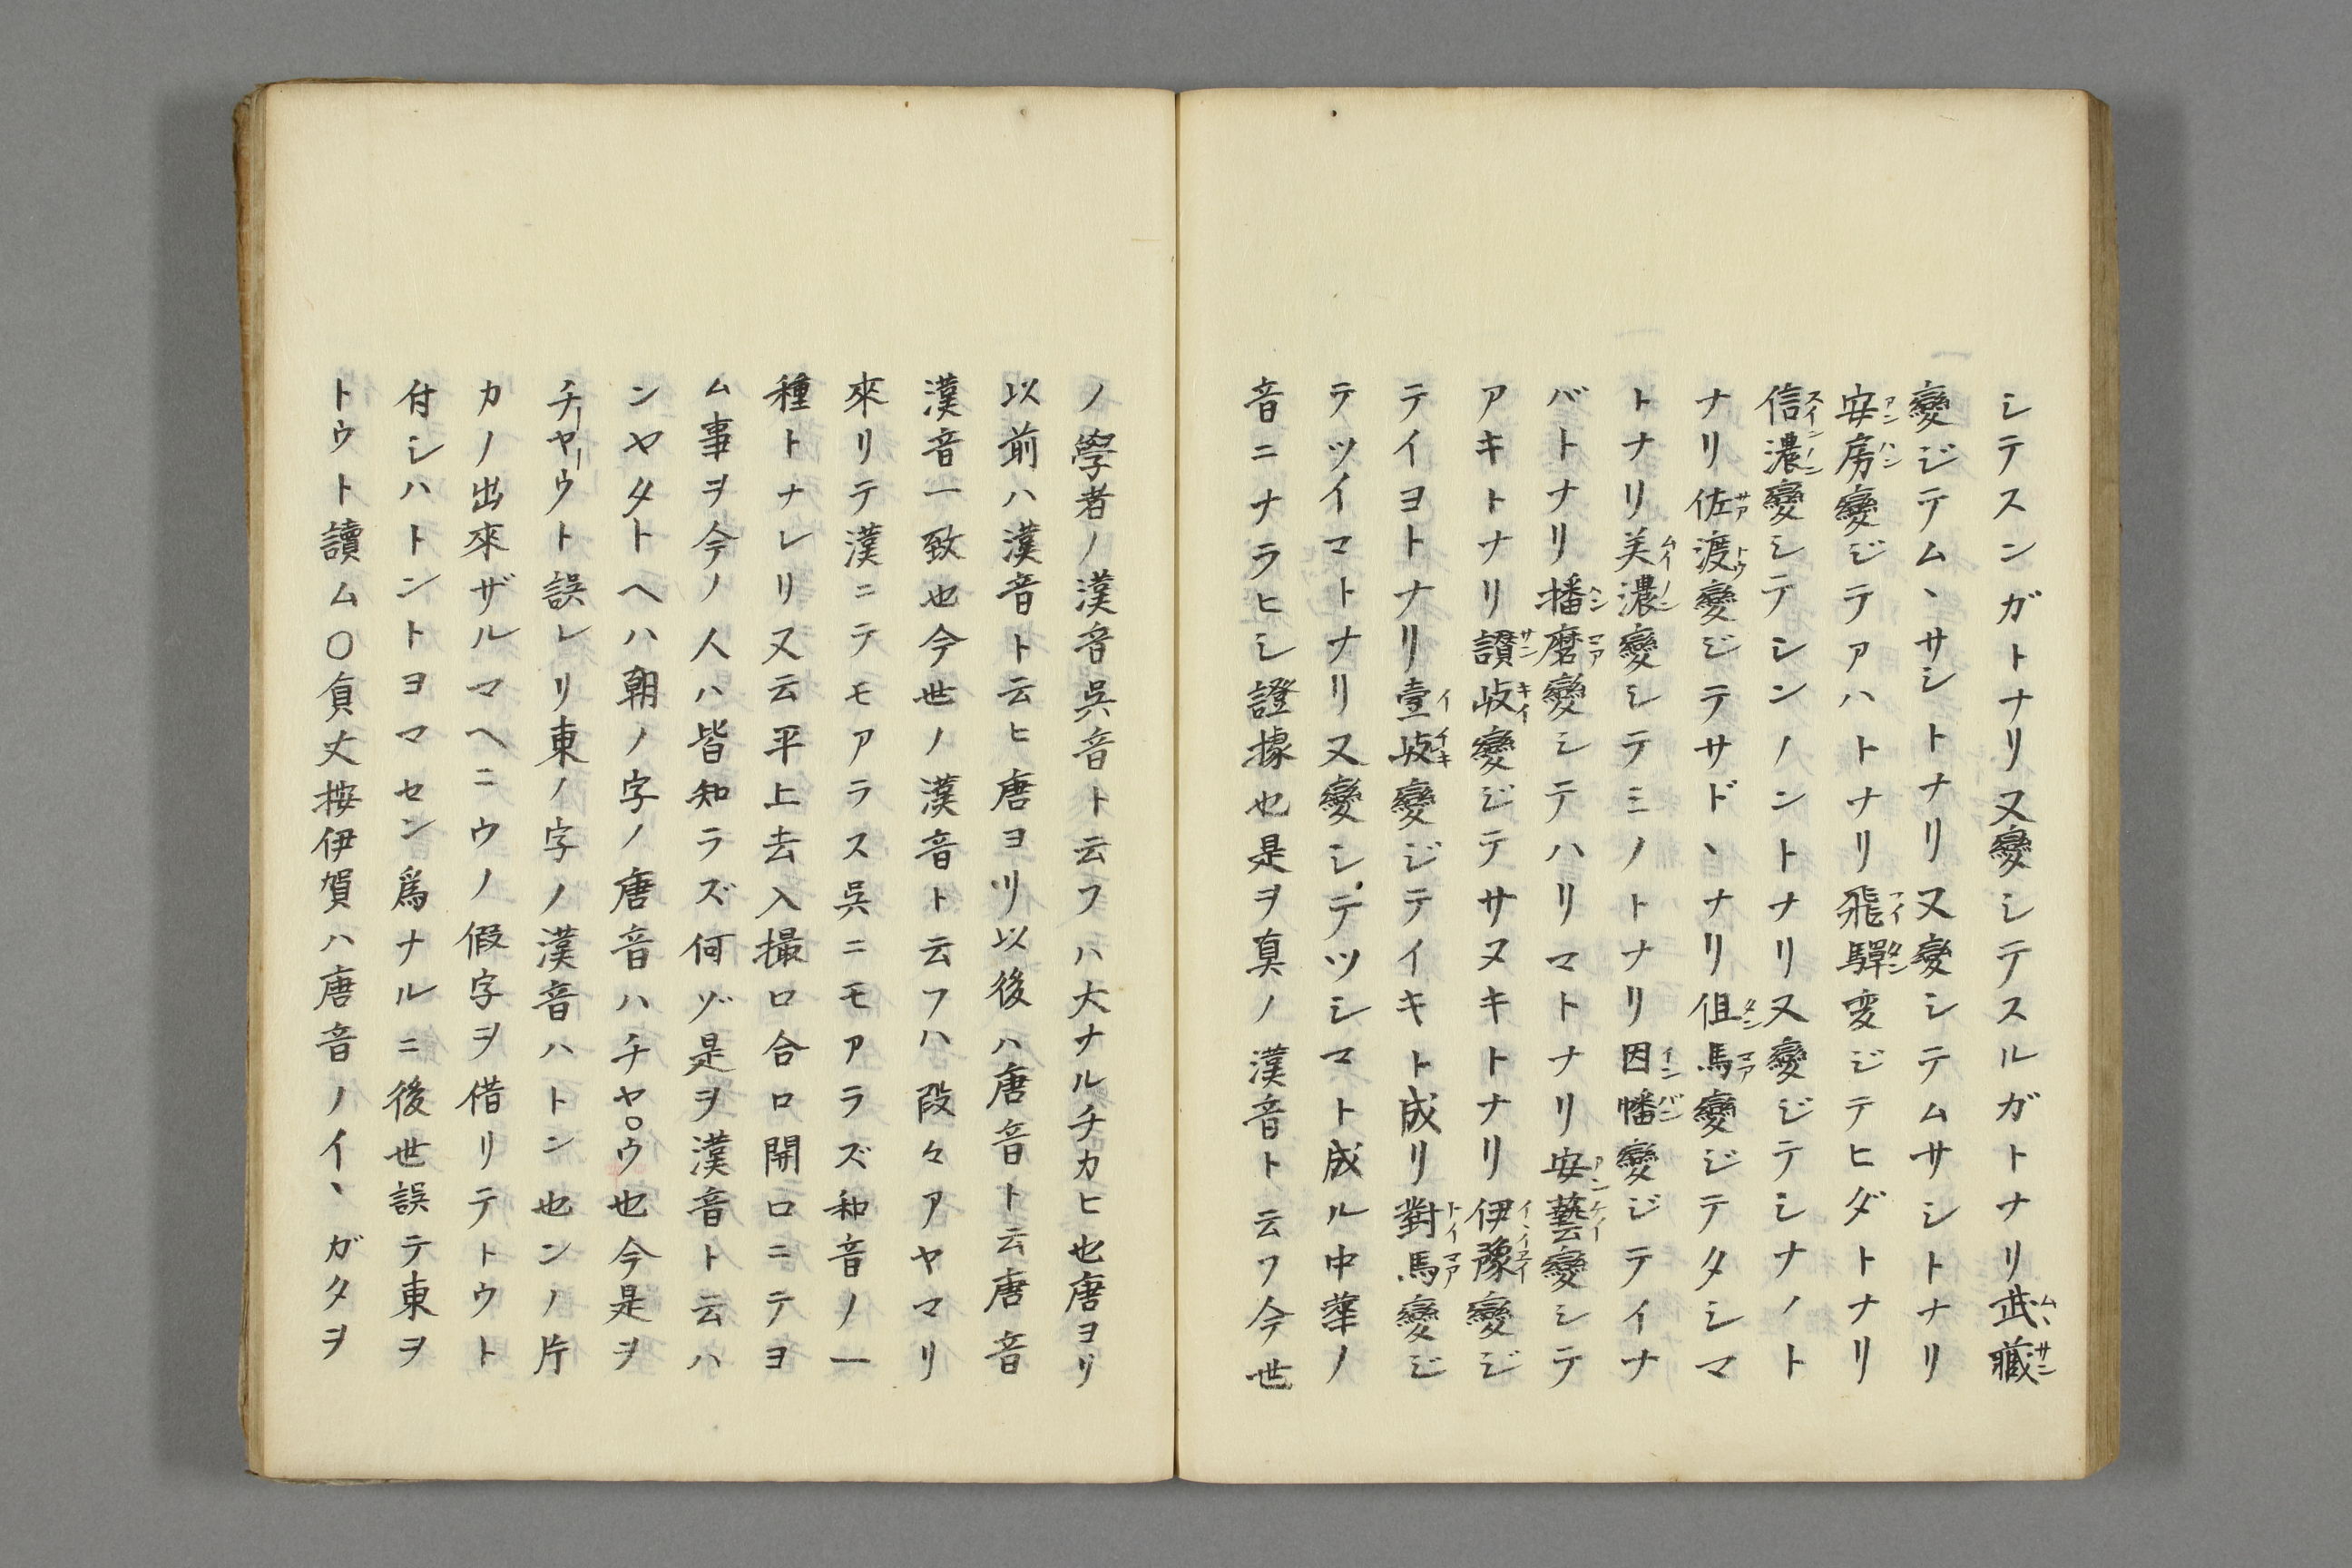 シテスンガトナリ又變シテスルガトナリ武藏
變ジテム、サシトナリ又變シテムサシトナリ
安房變ジテアハトナリ飛驒変ジテヒダトナリ
信濃變シテシンノントナリ又變ジテシナノト
ナリ佐渡變ジテサド、ナリ但馬變ジテタシマ
トナリ美濃變シテミノトナリ因幡變ジテイナ
バトナリ播磨變シテハリマトナリ安藝變シテ
アキトナリ讃岐變ジテサヌキトナリ伊豫變ジ
テイヨトナリ壹岐變ジテイキト成リ對馬變ジ
テツイマトナリ又變シテツシマト成ル中華ノ
音ニナラヒシ證據也是ヲ真ノ漢音ト云フ今世
ノ學者ノ漢音呉音ト云フハ大ナルチカヒ也唐ヨリ
以前ハ漢音ト云ヒ唐ヨリ以後ハ唐音ト云唐音
漢音一致也今世ノ漢音ト云フハ段々アヤマリ
來リテ漢ニテモアラス呉ニモアラズ和音ノ一
種トナレリ又云平上去入撮口合口開口ニテヨ
ム事ヲ今ノ人ハ皆知ラズ何ゾ是ヲ漢音ト云ハ
ンヤタトヘハ朝ノ字ノ唐音ハチヤ○ウ也今是ヲ
チーヤーウト誤レリ東ノ字ノ漢音ハトン也ンノ片
カノ出來ザルマヘニウノ假字ヲ借リテトウト
付シハトントヨマセン爲ナルニ後世誤テ東ヲ
トウト讀ム○貞丈按伊賀ハ唐音ノイ、ガタヲ